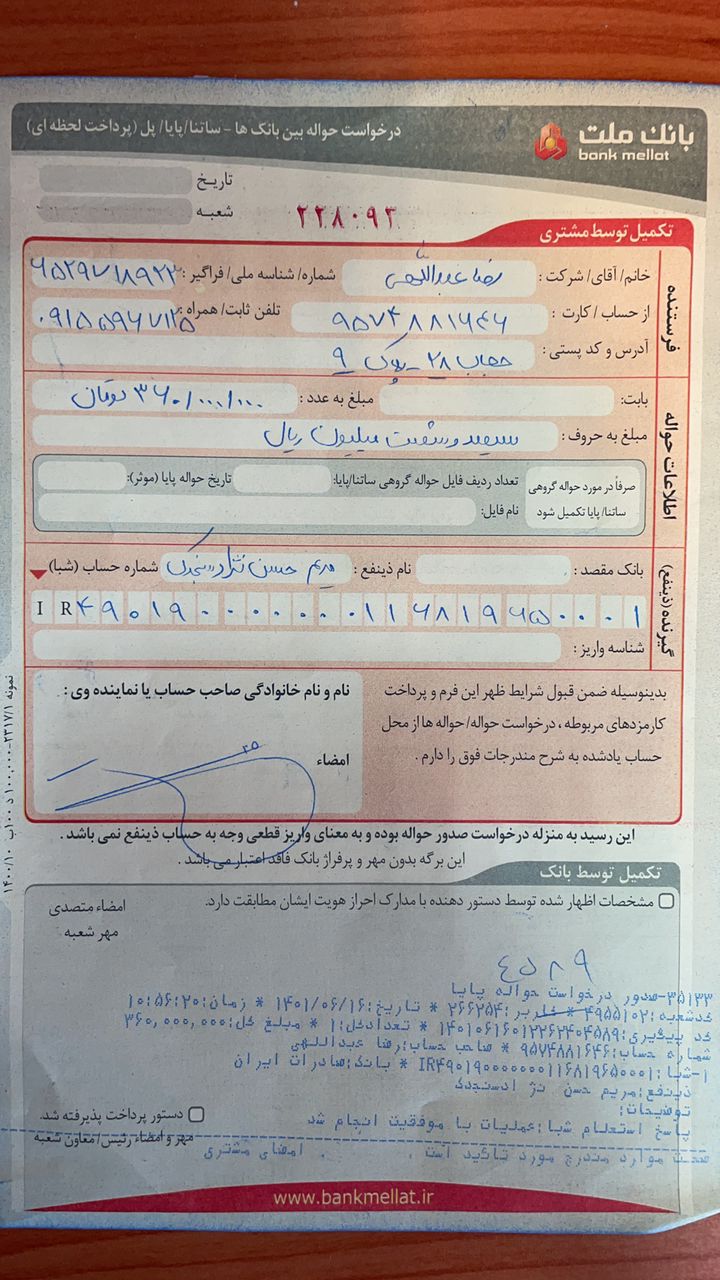 بانک ملت
bank mellat
درخواست حواله بین بانک ها - ساتنا/پایا/ پل (پرداخت لحظه ای)
تاریخ
شعبه
۲۲۸۰۹۳
تکمیل توسط مشتری
فرستنده
خانم/ آقای/ شرکت : رضا عبداللهی شماره/ شناسه ملی/ فراگیر :
از حساب / کارت : ۹۵۷۴۸۸۱۶۴۶ تلفن ثابت/ همراه :
آدرس و کد پستی : حجاب ۲۸ - پلاک ۹
اطلاعات حواله
بابت: مبلغ به عدد : ۳۶۰/۰۰۰/۰۰۰ تومان
مبلغ به حروف : سیصد و شصت میلیون ریال
صرفاً در مورد حواله گروهی
ساتنا/ پایا تکمیل شود
تعداد ردیف فایل حواله گروهی ساتنا/پایا: تاریخ حواله پایا (موثر):
نام فایل:
گیرنده (ذینفع)
بانک مقصد : نام ذینفع : مریم حسن نژاد شماره حساب (شبا)
IR ۴۹۰۱۹۰۰۰۰۰۰۰۱۱۶۸۱۹۶۵۰۰۰۱
شناسه واریز :
بدینوسیله ضمن قبول شرایط ظهر این فرم و پرداخت
کارمزدهای مربوطه ، درخواست حواله/ حواله ها از محل
حساب یادشده به شرح مندرجات فوق را دارم .
نام و نام خانوادگی صاحب حساب یا نماینده وی :
امضاء
این رسید به منزله درخواست صدور حواله بوده و به معنای واریز قطعی وجه به حساب ذینفع نمی باشد .
این برگه بدون مهر و پرفراژ بانک فاقد اعتبار می باشد .
تکمیل توسط بانک
مشخصات اظهار شده توسط دستور دهنده با مدارک احراز هویت ایشان مطابقت دارد.
امضاء متصدی
مهر شعبه
۳۵۱۳۳-صدور درخواست حواله پایا
کدشعبه:۴۹۵۵۱۰۲ * کاربر:۲۶۶۲۵۴ * تاریخ:۱۴۰۱/۰۶/۱۶ * زمان:۱۰:۵۶:۲۰
کد پیگیری:۱۴۰۱۰۶۱۶۰۱۲۲۶۲۴۰۴۵۸۹ * تعدادکل:۱ * مبلغ کل:۳۶۰,۰۰۰,۰۰۰
شماره حساب:۹۵۷۴۸۸۱۶۴۶ * صاحب حساب:رضا عبداللهی
۱-شبا:IR۴۹۰۱۹۰۰۰۰۰۰۰۱۱۶۸۱۹۶۵۰۰۰۱ * بانک:صادرات ایران
ذینفع:مریم حسن نژ ادسنجدک
توضیحات:
پاسخ استعلام شبا:عملیات با موفقیت انجام شد
صحت موارد مندرج مورد تائید است . امضای مشتری
دستور پرداخت پذیرفته شد.
مهر و امضاء رئیس/ معاون شعبه
www.bankmellat.ir